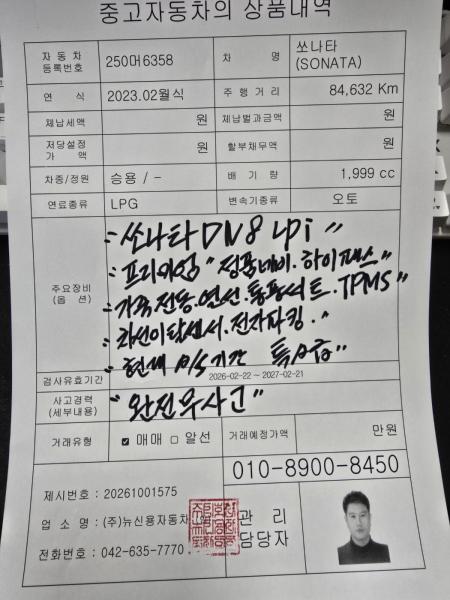 중고자동차의 상품내역
자동차등록번호 250머6358 차명 쏘나타(SONATA)
연식 2023.02월식 주행거리 84,632 Km
체납세액 원 체납벌과금액 원
저당설정가액 원 할부채무액 원
차종/정원 승용 / - 배기량 1,999 cc
연료종류 LPG 변속기종류 오토
주요장비(옵션)
쏘나타 DN8 LPi "
프리미엄 " 정품네비. 하이패스"
가죽.전동.열선.통풍시트.TPMS"
차선이탈센서.전자파킹."
현재 A/S기간 특A급"
검사유효기간 2026-02-22 ~ 2027-02-21
사고경력(세부내용) "완전무사고"
거래유형 ☑ 매매 □ 알선 거래예정가액 만원
010-8900-8450
제시번호 : 20261001575
업소명 : (주)뉴신용자동차
전화번호 : 042-635-7770
관리담당자